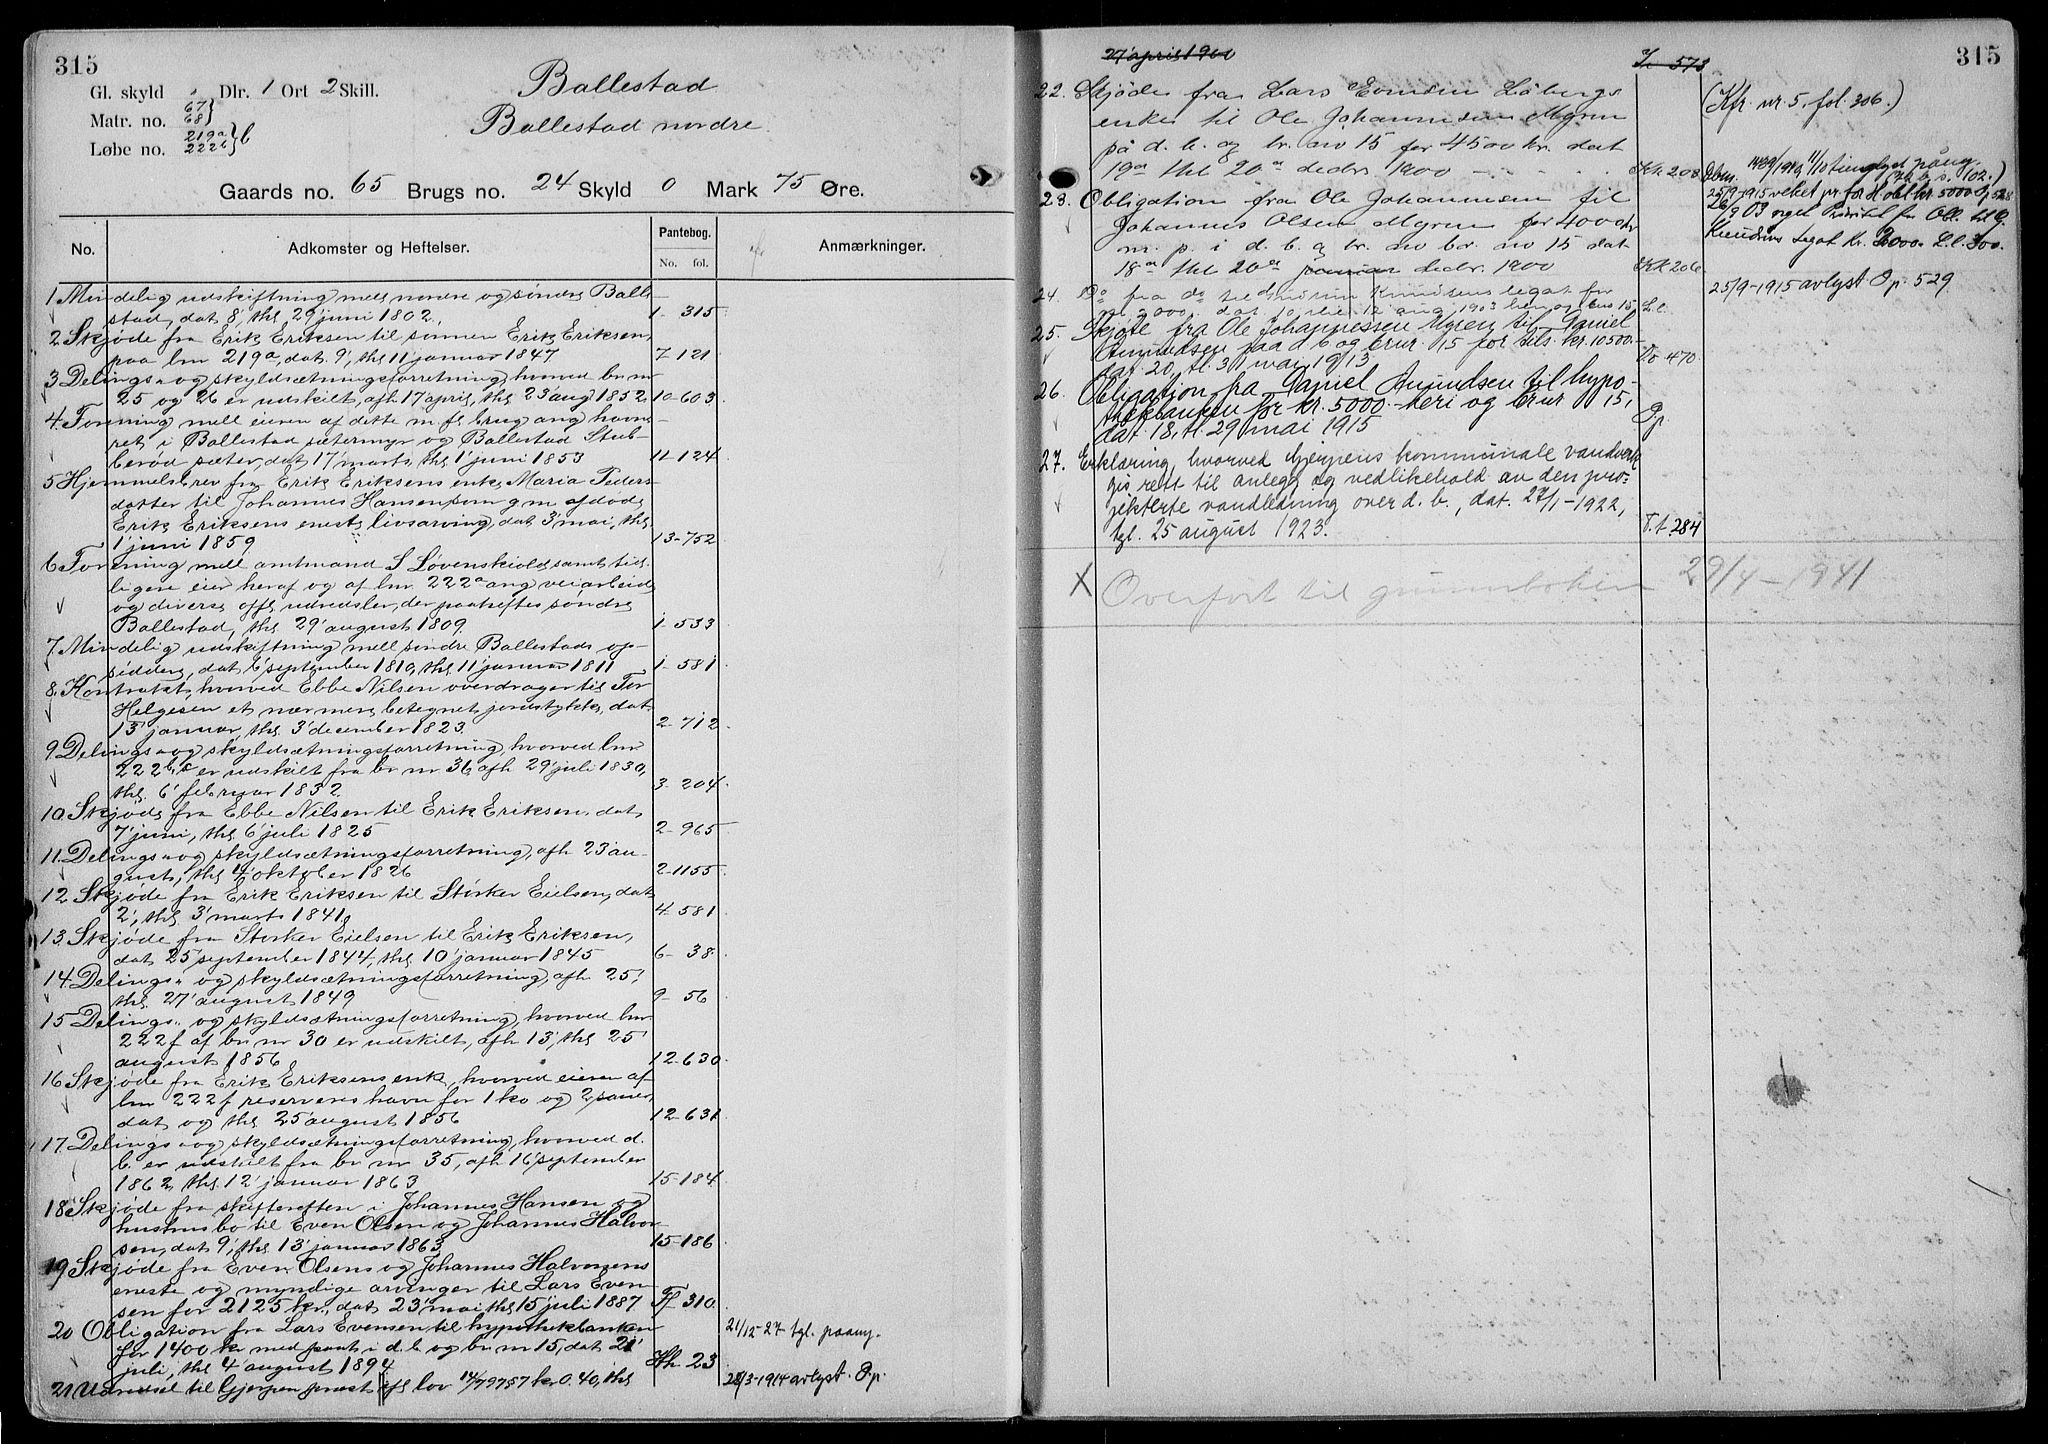 315
Gl. skyld " Dlr. 1 Ort 2 Skill.
Matr. no. 67 68
Løbe no. 219a 222b } b
Ballestad
Ballestad nordre
Gaards no. 65 Brugs no. 24 Skyld 0 Mark 75 Øre.
No. Adkomster og Heftelser. Pantebog. No. fol. Anmærkninger.
1 Mindelig udskiftning mell nordre og søndre Balle-
stad, dat 8', thl 29' juni 1802. 1- 315
2 Skjøde fra Erik Eriksen til sønnen Erik Eriksen,
paa lnr 219a, dat 9', thl 11' januar 1847 7 121
3 Delings- og skyldsætningsforretning, hvorved br nr
25 og 26 er udskilt, afh 17' april, thl 23' aug 1852 10-603
4. Forening mell eieren af dette m fl brug ang havne-
ret i Ballestad sætermyr og Ballestad Stub-
berød sæter, dat 17' marts, thl 1' juni 1853 11-124
5 Hjemmelsbrev fra Erik Eriksens enke Maria Peders-
datter til Johannes Hansen som g m afdøde
Erik Eriksens eneste livsarving, dat 3' mai, thl
1' juni 1859 13-752
6 Forening mell amtmand S Løvenskiold samt tid-
ligere eier heraf og af lnr 222a ang veiarbeide
og diverse offl udredsler, der paaheftes søndre
Ballestad, thl 29' august 1809. 1- 533
7. Mindelig udskiftning mell søndre Ballestads op-
siddere, dat 6' september 1810, thl 11' januar 1811 1- 581
8. Kontrakt, hvorved Ebbe Nilsen overdrager til Tor
Helgesen et nærmere betegnet jordstykke, dat
15' januar, thl 3' december 1823. 2- 712
9 Delings- og skyldsætningsforretning, hvorved lnr
222b,c er udskilt fra br nr 36, afh 29' juli 1830,
thl 6' februar 1832. 3- 204
10 Skjøde fra Ebbe Nilsen til Erik Eriksen, dat
7' juni, thl 6' juli 1825 2- 965
11. Delings- og skyldsætningsforretning, afh 23' au-
gust, thl 4' oktober 1826 2-1155
12 Skjøde fra Erik Eriksen til Størker Eielsen, dat
2', thl 3' marts 1841. 4- 581
13. Skjøde fra Størker Eielsen til Erik Eriksen,
dat 25' september 1844, thl 10' januar 1845 6- 38
14. Delings- og skyldsætningsforretning, afh 25',
thl 27' august 1849 9- 56
15 Delings- og skyldsætningsforretning, hvorved lnr
222f af br nr 30 er udskilt, afh 13', thl 25'
august 1856 12-630
16 Skjøde fra Erik Eriksens enke, hvorved eieren af
lnr 222f reserveres havn for 1 ko og 2 sauer,
dat og thl 25' august 1856 12-631
17. Delings- og skyldsætningsforretning, hvorved d.
b. er udskilt fra br nr 35, afh 16' september
1862, thl 12' januar 1863 15-184
18 Skjøde fra skifteretten i Johannes Hansen og
hustrus bo til Even Olsen og Johannes Halvor-
sen, dat 9', thl 13' januar 1863 15-186
19 Skjøde fra Even Olsens og Johannes Halvorsens
eneste og myndige arvinger til Lars Even-
sen for 2125 kr., dat 23' mai, thl 15' juli 1887 Ff 310.
20 Obligation fra Lars Evensen til hypothekbanken
for 1400 kr med pant i d. b. og br. nr 15, dat 21'
juli, thl 4' august 1894 Hh 23
21/12-27 tgl. paany.
28/3-1914 avlyst. P.p.
21 Udredsel til Gjerpen prest efl lov 14/7 97 § 7 kr. 0.40, thl
315
27' april 1900 573
22. Skjøde fra Lars Evensen Løbergs
enke til Ole Johannesen Myren
på d. b. og br. no 15 for 4500 kr. dat
19de thl 20de decbr. 1900 Kk 208
(Kfr. nr. 5, fol. 306.)
23. Obligation fra Ole Johannesen til
Johannes Olsen Myren for 400 kr
m. p. i d. b. og br. no 15 dat
18de thl 20de januar decbr. 1900 Kk 206
25/9-1915 veket pr. for obl kr. 5000
24. Do fra do til Knudsens legat for
kr. 2000, dat 10, thl 12 aug. 1903 heri og brno 15 L.l.
Knudsens Legat Kr. 2000. L.l. 300.
25/9-1915 avlyst O p. 529
25. Skjøte fra Ole Johannessen Myren til Daniel
Amundsen paa d b og brnr. 15 for tils. kr. 10500.-
dat. 20, tl. 31 mai 1913 470
26. Obligation fra Daniel Amundsen til hypo-
thekbanken for kr. 5000.- heri og brnr 15,
dat. 18, tl. 29 mai 1915 P.p.
27. Erklæring, hvorved Gjerpens kommunale vandverk
gis rett til anlegg og vedlikehold av den pro-
jekterte vandledning over d. b., dat. 27/1-1922,
tgl. 25 august 1923. T.t. 284
X Overført til grunnboken 29/4-1941